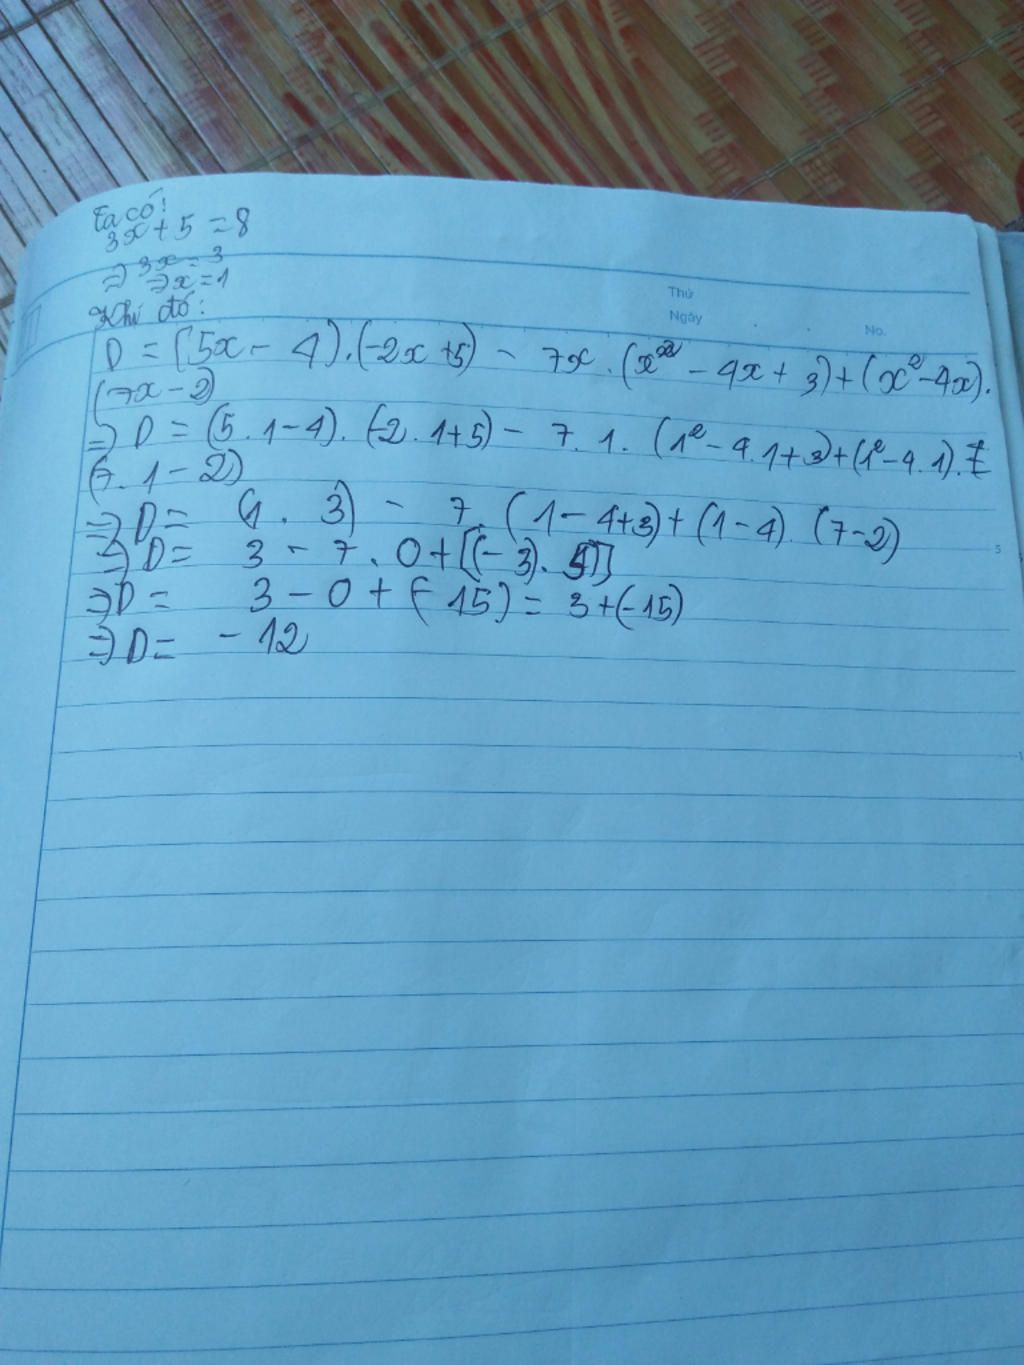 Ta có:
3x + 5 = 8
⇒ 3x = 3
⇒ x = 1
Thứ
Ngày . . No.
Khi đó:
D = (5x - 4).(-2x+5) - 7x.(x² - 4x + 3) + (x² - 4x).
(7x - 2)
⇒ D = (5.1 - 4).(-2.1+5) - 7.1.(1² - 4.1+3)+(1² - 4.1).
(7.1 - 2)
⇒ D = (1.3) - 7.(1 - 4+3)+(1 - 4).(7-2)
5
⇒ D = 3 - 7.0+[(-3).5]
⇒ D = 3 - 0 + (-15) = 3+(-15)
⇒ D = -12